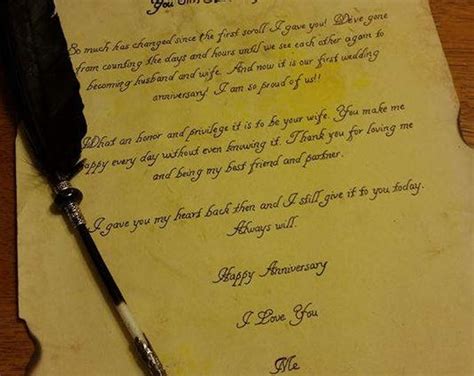 You
So much has changed since the first scroll I gave you! We've gone
from counting the days and hours until we see each other again to
becoming husband and wife. And now it is our first wedding
anniversary! I am so proud of us!!
What an honor and privilege it is to be your wife. You make me
happy every day without even knowing it. Thank you for loving me
and being my best friend and partner.
I gave you my heart back then and I still give it to you today.
Always will.
Happy Anniversary
I Love You
Me